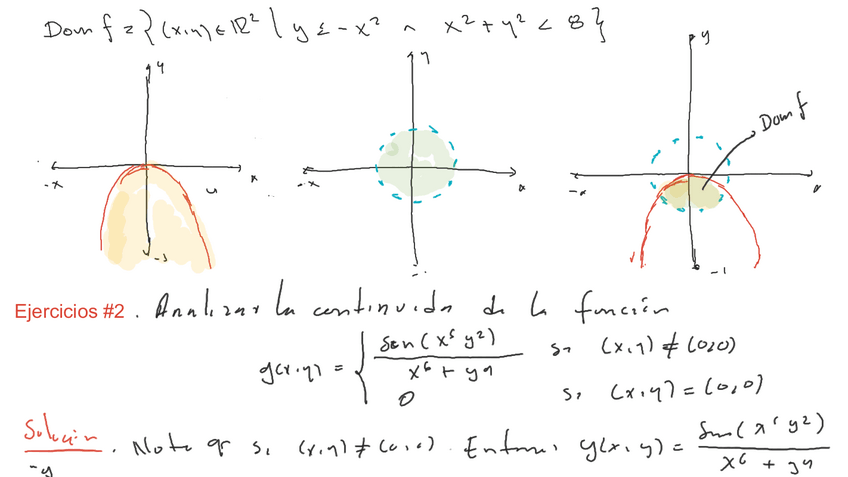 Dom f = {(x,y) ∈ ℝ² \ y ≤ -x² ^ x² + y² < 8}
y
-x x
-y
y
-x x
y
Dom f
-x x
Ejercicios #2. Analizar la continuida de la función
g(x,y) = { sen(x⁵ y²) / x⁶ + y⁴ si (x,y) ≠ (0,0)
0 si (x,y) = (0,0)
Solución. Note q si (x,y) ≠ (0,0). Entonces g(x,y) = Sen(x⁵ y²) / x⁶ + y⁴